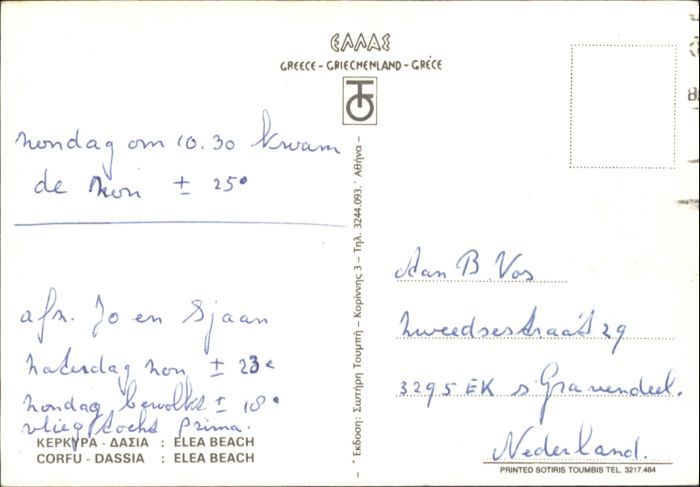 ΕΛΛΑΣ
GREECE - GRIECHENLAND - GRÉCE
zondag om 10.30 kwam
de zon ± 25°
afz. Jo en Sjaan
zaterdag zon ± 23°
zondag bewolkt ± 18°
vliegtocht prima.
ΚΕΡΚΥΡΑ - ΔΑΣΙΑ : ELEA BEACH
CORFU - DASSIA : ELEA BEACH
Έκδοση: Σωτήρη Τουμπή – Κορίννης 3 – Τηλ. 3244.093. Αθήνα –
Aan B. Vos
Zweedsestraat 29
3295 EK s Gravendeel.
Nederland.
PRINTED SOTIRIS TOUMBIS TEL. 3217.484